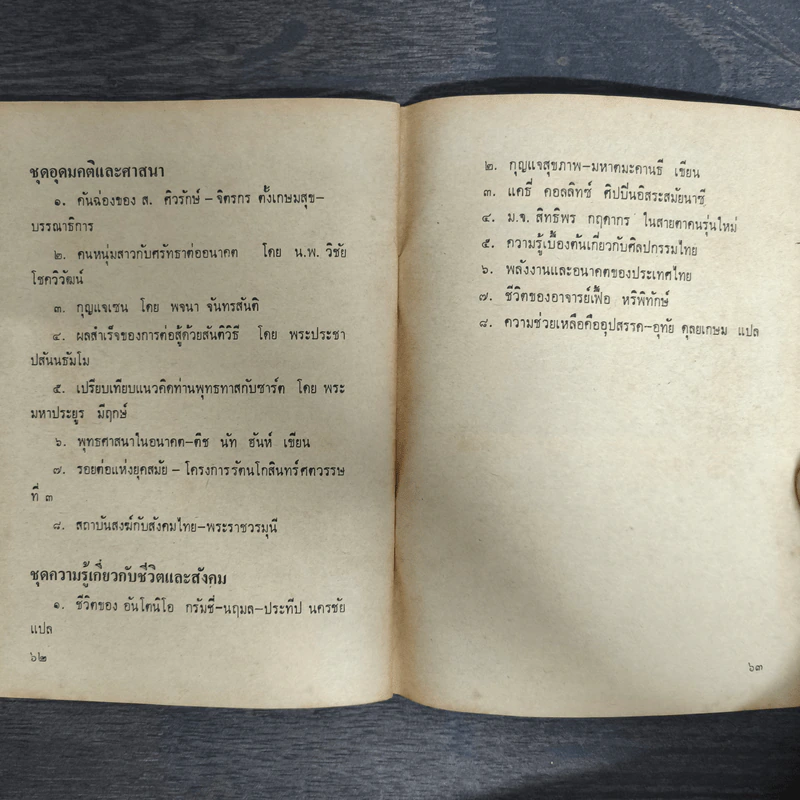 ชุดอุดมคติและศาสนา
๑. คันฉ่องของ ส. ศิวรักษ์ – จิตรกร ตั้งเกษมสุข–
บรรณาธิการ
๒. คนหนุ่มสาวกับศรัทธาต่ออนาคต โดย น.พ. วิชัย
โชควิวัฒน์
๓. กุญแจเซน โดย พจนา จันทรสันติ
๔. ผลสำเร็จของการต่อสู้ด้วยสันติวิธี โดย พระประชา
ปสันนธัมโม
๕. เปรียบเทียบแนวคิดท่านพุทธทาสกับซาร์ต โดย พระ
มหาประยูร มีฤกษ์
๖. พุทธศาสนาในอนาคต–ติช นัท ฮันห์ เขียน
๗. รอยต่อแห่งยุคสมัย – โครงการรัตนโกสินทร์ศตวรรษ
ที่ ๓
๘. สถาบันสงฆ์กับสังคมไทย–พระราชวรมุนี
ชุดความรู้เกี่ยวกับชีวิตและสังคม
๑. ชีวิตของ อันโตนิโอ กรัมชี่–นฤมล–ประทีป นครชัย
แปล
๖๒
๒. กุญแจสุขภาพ–มหาตมะคานธี เขียน
๓. แคธี่ คอลลิทซ์ ศิปปินอิสระสมัยนาซี
๔. ม.จ. สิทธิพร กฤดากร ในสายตาคนรุ่นใหม่
๕. ความรู้เบื้องต้นเกี่ยวกับศิลปกรรมไทย
๖. พลังงานและอนาคตของประเทศไทย
๗. ชีวิตของอาจารย์เฟื้อ หริพิทักษ์
๘. ความช่วยเหลือคืออุปสรรค–อุทัย ดุลยเกษม แปล
๖๓